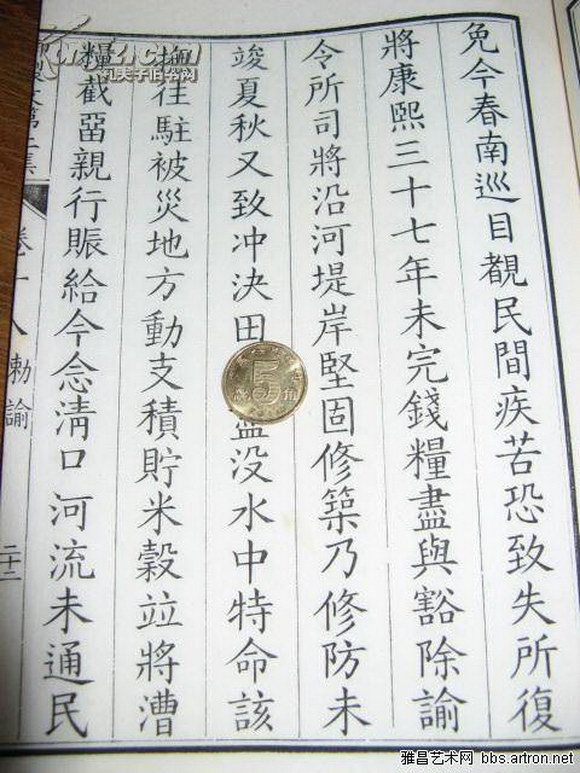 免今春南巡目覩民間疾苦恐致失所復
將康熙三十七年未完錢糧盡與豁除諭
令所司將沿河堤岸堅固修築乃修防未
竣夏秋又致冲決田没水中特命該
撫往駐被災地方動支積貯米穀竝將漕
糧截畱親行賑給今念淸口河流未通民
文第二集
卷十八
勅諭
二十二
5
角
孔夫子旧书网
雅昌艺术网 bbs.artron.net